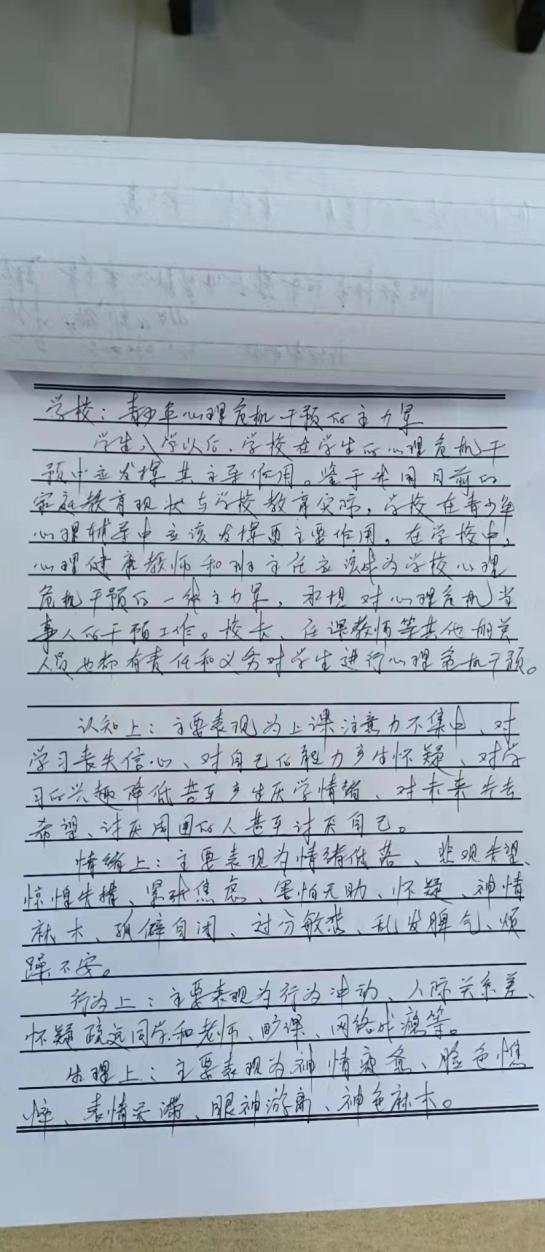 学校：青少年心理危机干预的主力军
学生入学以后，学校在学生的心理危机干
预中应发挥其主导作用。鉴于我国目前的
家庭教育现状与学校教育实际，学校在青少年
心理辅导中应该发挥更主要作用。在学校中，
心理健康教师和班主任应该成为学校心理
危机干预的一线主力军，承担对心理危机当
事人的干预工作。校长、任课教师等其他相关
人员也都有责任和义务对学生进行心理危机干预。
认知上：主要表现为上课注意力不集中、对
学习丧失信心、对自己的能力产生怀疑、对学
习的兴趣降低甚至产生厌学情绪、对未来失去
希望、讨厌周围的人甚至讨厌自己。
情绪上：主要表现为情绪低落、悲观失望、
惊惶失措、紧张焦虑、害怕无助、怀疑、神情
麻木、孤僻自闭、过分敏感、乱发脾气、烦
躁不安。
行为上：主要表现为行为冲动、人际关系差、
怀疑疏远同学和老师、旷课、网络成瘾等。
生理上：主要表现为神情疲惫、脸色憔
悴、表情呆滞、眼神游离、神色麻木。